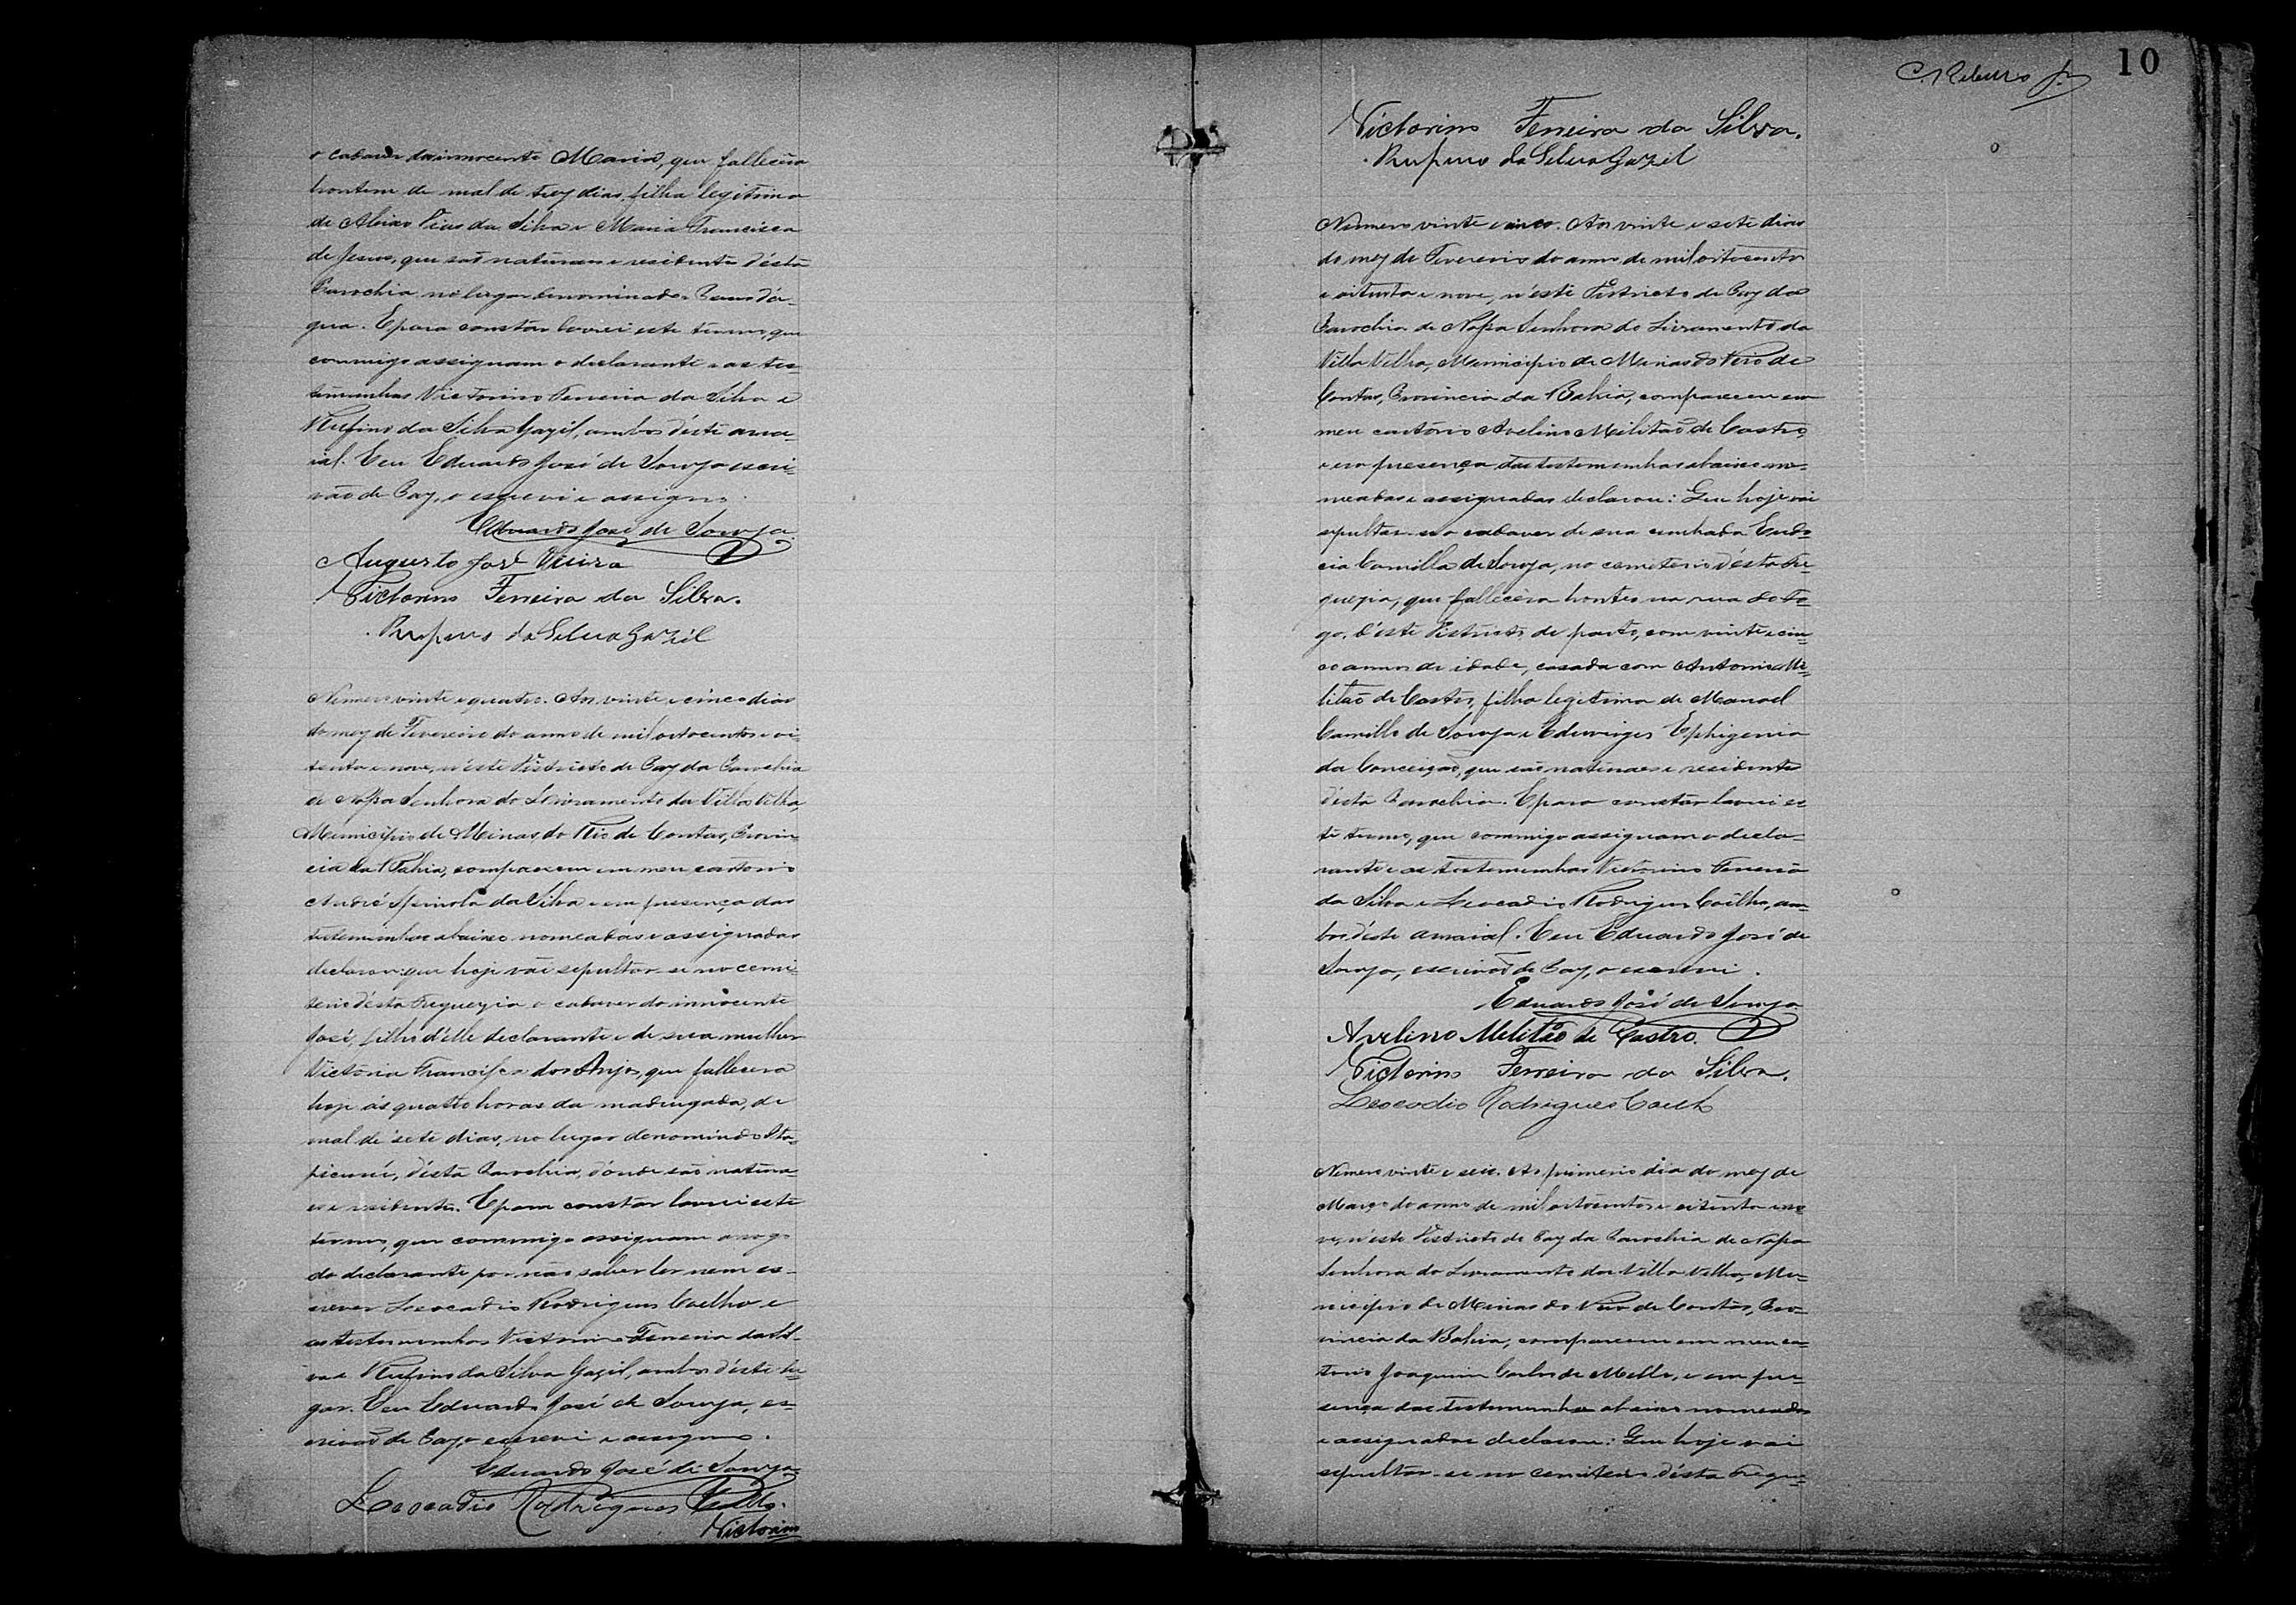 o cadaver da innocente Maria, que fallecêra
hontem de mal de trez dias, filha legitima
da Silva e Maria Francisca
de Jesus, que são naturaes e residentes désta
Parochia no lugar denominado
gua. E para constar lavrei este termo, que
commigo assignam o declarante e as tes-
temunhas Victorino Ferreira da Silva e
Rufino da Silva Gazil, ambos déste arra-
ial. Eu Eduardo José de Souza escri-
vão de Paz, o escrevi e assigno.
Eduardo José de Souza
Augusto José Vieira
Victorino Ferreira da Silva.
Rufino da Silva Gazil
Numero vinte e quatro. Aos vinte e cinco dias
do mez de Fevereiro do anno de mil oitocentos e oi-
tenta e nove, n'éste Districto de Paz da Parochia
de Nossa Senhora do Livramento da Villa Velha,
Municipio de Minas do Rio de Contas, Provin-
cia da Bahia, compareceu em meu cartorio
André Spinola da Silva e em presença das
testemunhas abaixo nomeadas e assignadas
declarou: que hoje vai sepultar-se no cemi-
terio désta Freguezia o cadaver do innocente
José, filho d'elle declarante e de sua mulher
Victoria Francisca dos Anjos, que fallecera
hoje ás quatro horas da madrugada, de
mal de sete dias, no lugar denominado Ita-
picurú, désta Parochia, d'onde são natura-
es e residentes. E para constar lavrei este
termo, que commigo assignam a rogo
do declarante por não saber ler nem es-
crever Leocadio Rodrigues Coelho e
as testemunhas Victorino Ferreira da Sil-
va e Rufino da Silva Gazil, ambos d'éste lu-
gar. Eu Eduardo José de Souza, es-
crivão de Paz, o escrevi e assigno.
Eduardo José de Souza
Leocadio Rodrigues Coelho.
Victorino
10
Victorino Ferreira da Silva.
Rufino da Silva Gazil
Numero vinte e cinco. Aos vinte e sete dias
do mez de Fevereiro do anno de mil oitocentos
e oitenta e nove, n'éste Districto de Paz da
Parochia de Nossa Senhora do Livramento da
Villa Velha, Municipio de Minas do Rio de
Contas, Provincia da Bahia, compareceu em
meu cartorio Avelino Militão de Castro,
e em presença das testemunhas abaixo no-
meadas e assignadas declarou: Que hoje vai
sepultar-se o cadaver de sua cunhada Eudo-
cia Camilla de Souza, no cemiterio d'ésta Fre-
guezia, que fallecêra hontem na rua do Fo-
go, d'éste Districto de parto, com vinte e cin-
co annos de idade, casada com Antonio Mi-
litão de Castro, filha legitima de Manoel
Camillo de Souza e Edwirges Ephigenia
da Conceição, que são naturaes e residentes
désta Parochia. E para constar lavrei es-
te termo, que commigo assignam o decla-
rante e as testemunhas Victorino Ferreira
da Silva e Leocadio Rodrigues Coêlho, am-
bos d'éste arraial. Eu Eduardo José de
Souza, escrivão de Paz, o escrevi.
Eduardo José de Souza
Avelino Militão de Castro.
Victorino Ferreira da Silva.
Leocadio Rodrigues Coelho
Numero vinte e seis. Ao primeiro dia do mez de
Março do anno de mil oitocentos e oitenta e no-
ve, n'éste Districto de Paz da Parochia de Nossa
Senhora do Livramento da Villa Velha, Mu-
nicipio de Minas do Rio de Contas, Pro-
vincia da Bahia, compareceu em meu car-
torio Joaquim Carlos de Mello, e em pre-
sença das testemunhas abaixo nomeadas
e assignadas declarou: Que hoje vai
sepultar-se no cemiterio désta Fregue-